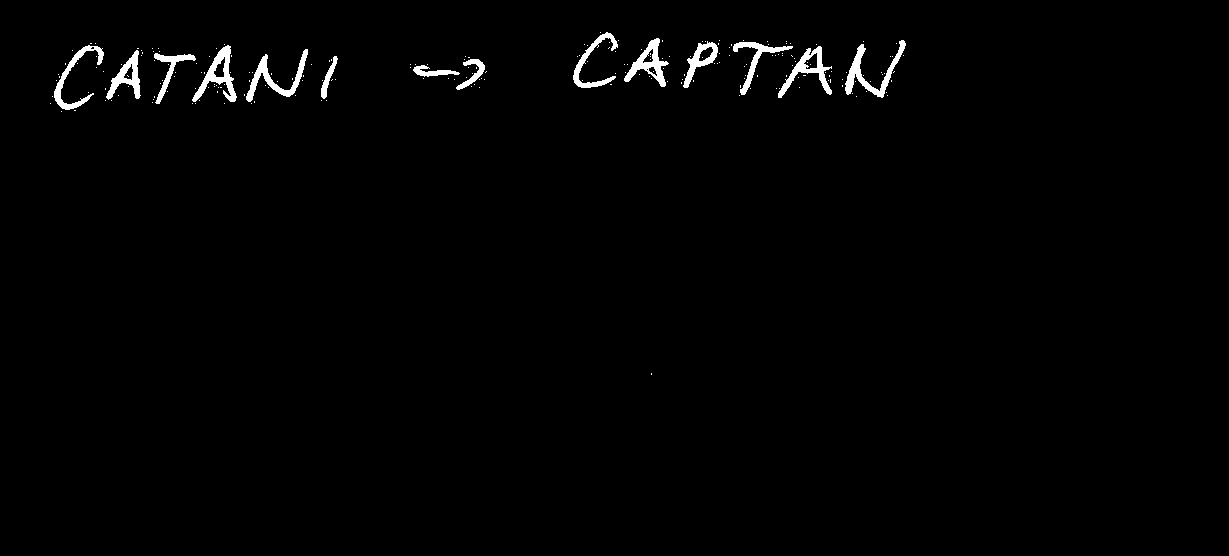 CATANI → CAPTAN